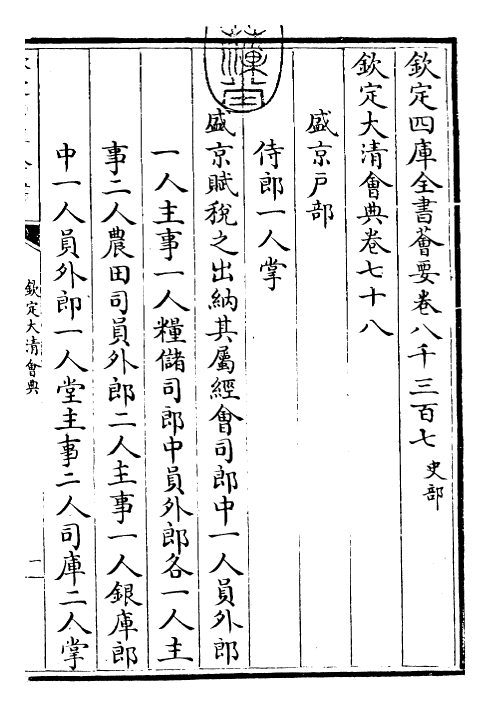 欽定四庫全書薈要卷八千三百七 史部
欽定大清會典卷七十八
盛京戸部
侍郎一人掌
盛京賦稅之出納其屬經會司郎中一人員外郎
一人主事一人糧儲司郎中員外郎各一人主
事二人農田司員外郎二人主事一人銀庫郎
中一人員外郎一人堂主事二人司庫二人掌
欽定大清會典